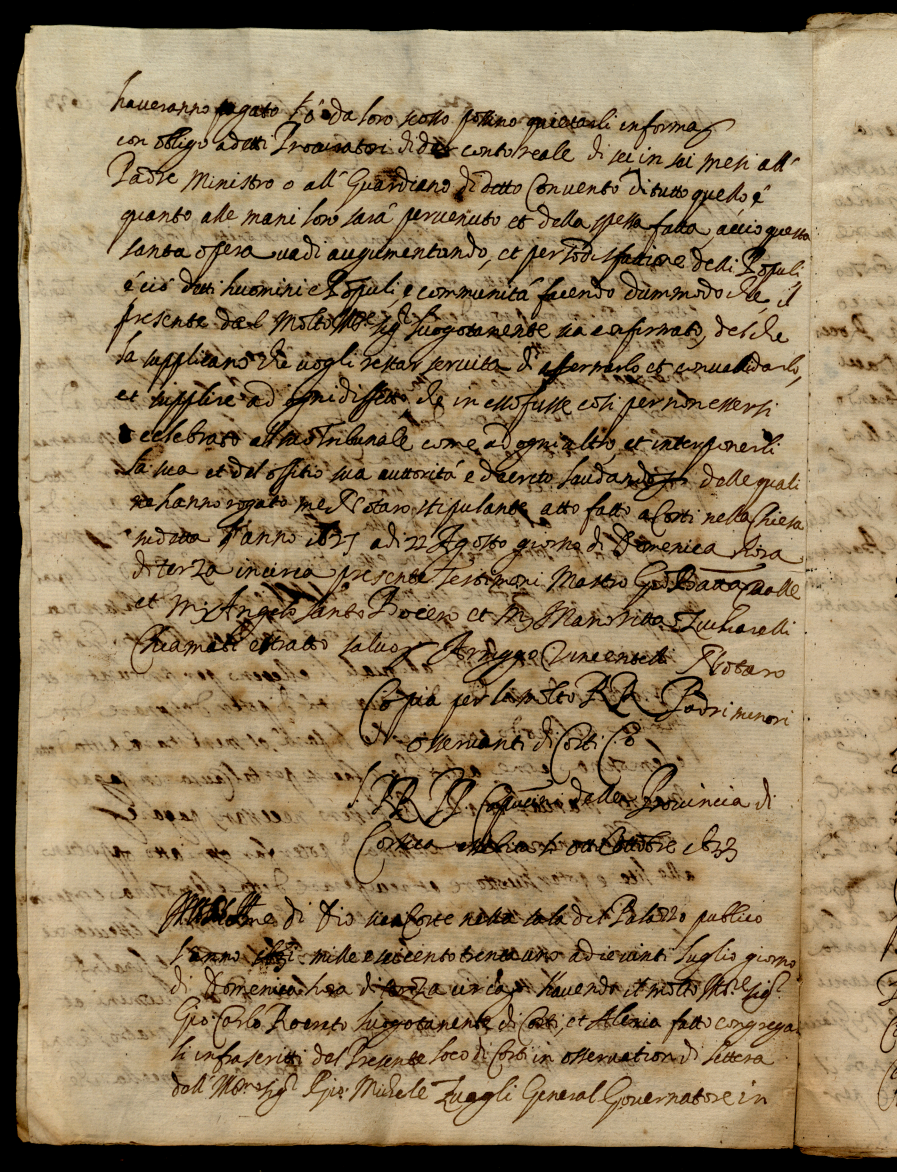 haveranno pagato ò da loro scosso possino quietarli in forma
con obligo a detti Procuratori di dar conto reale di sei in sei mesi all'
Padre Ministro o all' Guardiano di detto Convento di tutto quello è
quanto alle mani loro sarà pervenuto et della spesa fatta, acciò questa
santa opera vadi augumentando, et per sodisfatione delli Populi
è ciò detti huomini e Populi e communità facendo dummodo che il
presente dal Molto Sig. luogotenente sia confirmato, del che
la supplicano che vogli restar servita di affermarlo et convalidarlo,
et supplire ad ogni diffetto che in esso fusse così per non essersi
celebrato al suo Tribunale come ad ogni altro et interponerli
la sua et del offitio sua auttorità e decreto laudando delle quali
ne hanno rogato me Notaro stipulante atto fatto a Corti nella Chiesa
sudetta l'anno 1627 adi 22 Agosto giorno di Domenica hora
di terza in circa presente Testimoni Mastro Gio Batta
et M. Angelo Santo et M.
Chiamati estratto salvo Arrigge Vincentelli Notaro
Copia per la molto RR. Padri menori
osservanti di Corti
RR. PP. della Provincia di
Corsica 1633
Nome di Dio sia Corte nella sala del Palazzo publico
l'anno mille e seicento trenta uno adi vinti luglio giorno
di Domenica hora di terza circa. Havendo il molto Sig.
Gio: Carlo luogotenente di Corti, et Aleria fatto congregar
li infrascritti del Presente loco di Corti in osservation di lettera
dell' Sig. Gio: Michele Zuagli General Governatore in